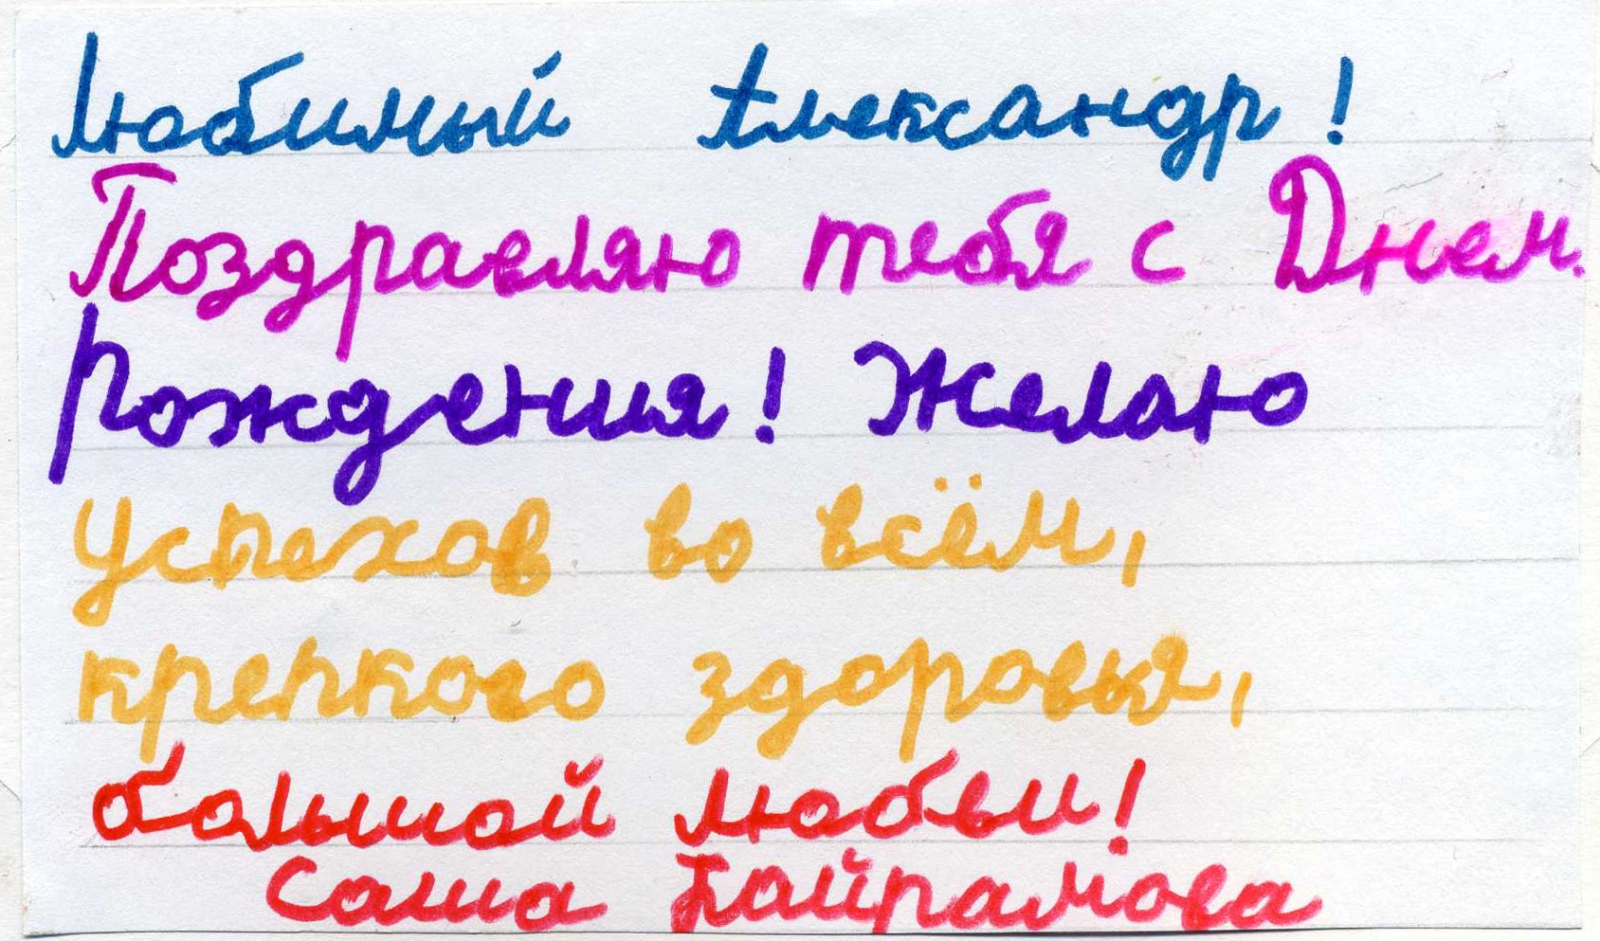 Любимый Александр!
Поздравляю тебя с Днем
Рождения! Желаю
успехов во всём,
крепкого здоровья,
большой любви!
Саша Байрамова